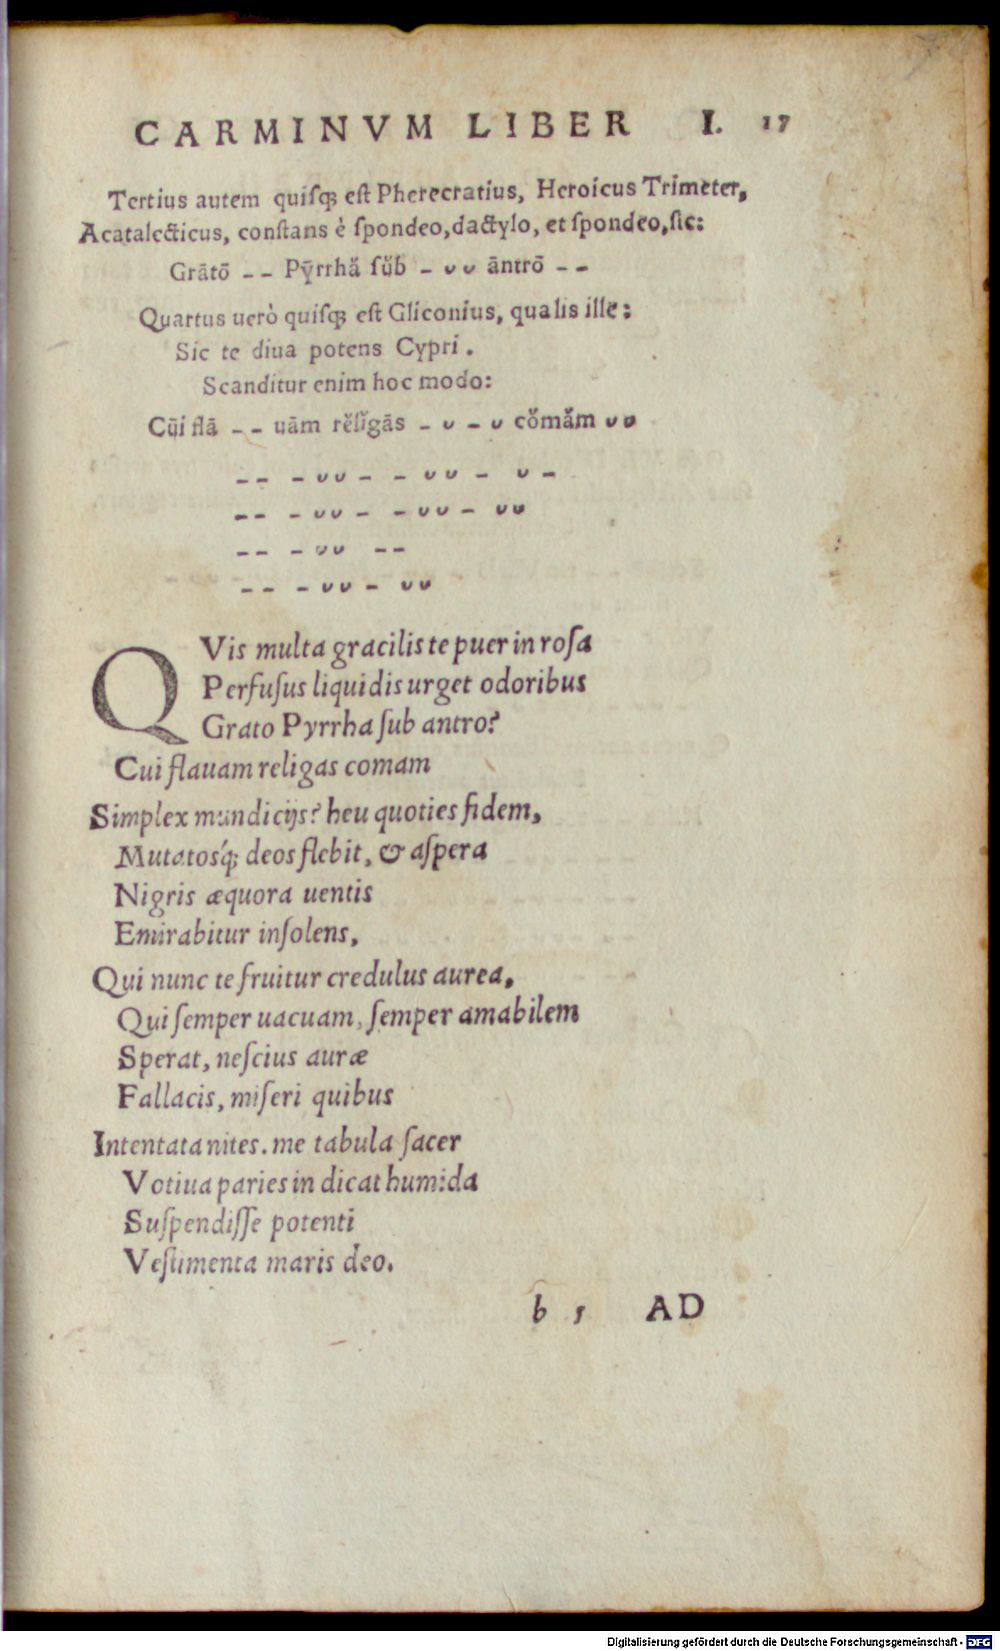 CARMINVM LIBER I. 17
Tertius autem quiſq; eſt Pherecratius, Heroicus Trimeter,
Acatalecticus, conſtans è ſpondeo, dactylo, et ſpondeo, ſic:
Grātō – – Pȳrrhă ſŭb – ᴗ ᴗ āntrō – –
Quartus uerò quiſq; eſt Gliconius, qualis ille:
Sic te diua potens Cypri.
Scanditur enim hoc modo:
Cūi flā – – uām rĕlĭgās – ᴗ – ᴗ cŏmăm ᴗ ᴗ
– – – ᴗ ᴗ – – ᴗ ᴗ – ᴗ –
– – – ᴗ ᴗ – – ᴗ ᴗ – ᴗ ᴗ
– – – ᴗ ᴗ – –
– – – ᴗ ᴗ – ᴗ ᴗ
QVis multa gracilis te puer in roſa
Perfuſus liquidis urget odoribus
Grato Pyrrha ſub antro?
Cui flauam religas comam
Simplex mundicijs? heu quoties fidem,
Mutatosq́; deos flebit, & aſpera
Nigris æquora uentis
Emirabitur inſolens,
Qui nunc te fruitur credulus aurea,
Qui ſemper uacuam, ſemper amabilem
Sperat, neſcius auræ
Fallacis, miſeri quibus
Intentata nites. me tabula ſacer
Votiua paries in dicat humida
Suſpendiſſe potenti
Veſtimenta maris deo.
b 5 AD
Digitalisierung gefördert durch die Deutsche Forschungsgemeinschaft - DFG